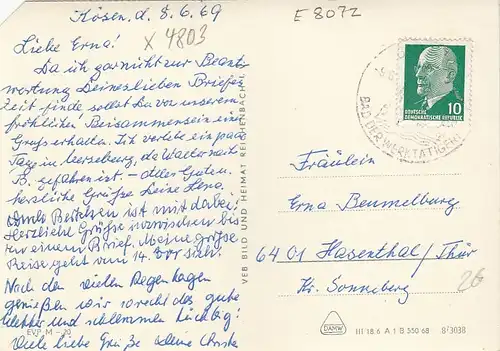 Kösen, d. 8.6.69
E 8072
X 4803
Liebe Erna!
Da ich gar nicht zur Beant
wortung Deines lieben Briefes
Zeit finde, sollst Du von unserem
fröhlichen Beisammensein eine
Gruß erhalten. Ich verlebe ein paar
Tage in Merseburg, da Walter nach
B. gefahren ist. – Alles Gute u.
herzliche Grüße Deine Lena.
ist mit dabei!
Herzliche Grüße inzwischen bis
zu einem Brief. Meine große
Reise geht vom 14.
Nach den vielen Regentagen
genießen wir so recht das gute
Wetter und schlemmen tüchtig!
Viele liebe Grüße Deine
EVP M –.20
VEB BILD UND HEIMAT REICHENBACH I. V.
DEUTSCHE
DEMOKRATISCHE REPUBLIK
10
BAD DER WERKTÄTIGEN
Fräulein
Erna Beumelburg
6401 Hasenthal/Thür
Kr. Sonneberg
26
DAMW
III 18.6 A 1 B 550 68 8/3038